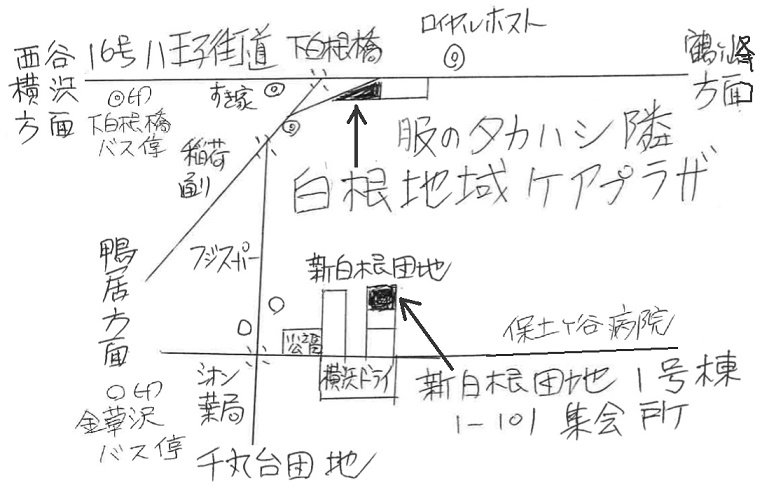 ロイヤルホスト
西谷
横浜
方面
16号八王子街道
下白根橋
鶴ヶ峰
方面
◎印
下白根橋
バス停
すき家
稲荷
通り
服のタカハシ隣
白根地域ケアプラザ
鴨居方面
フジスーパー
新白根団地
公園
保土ヶ谷病院
シオン
薬局
横浜ドライ
新白根団地1号棟
1-101 集会所
○印
金草沢
バス停
千丸台団地